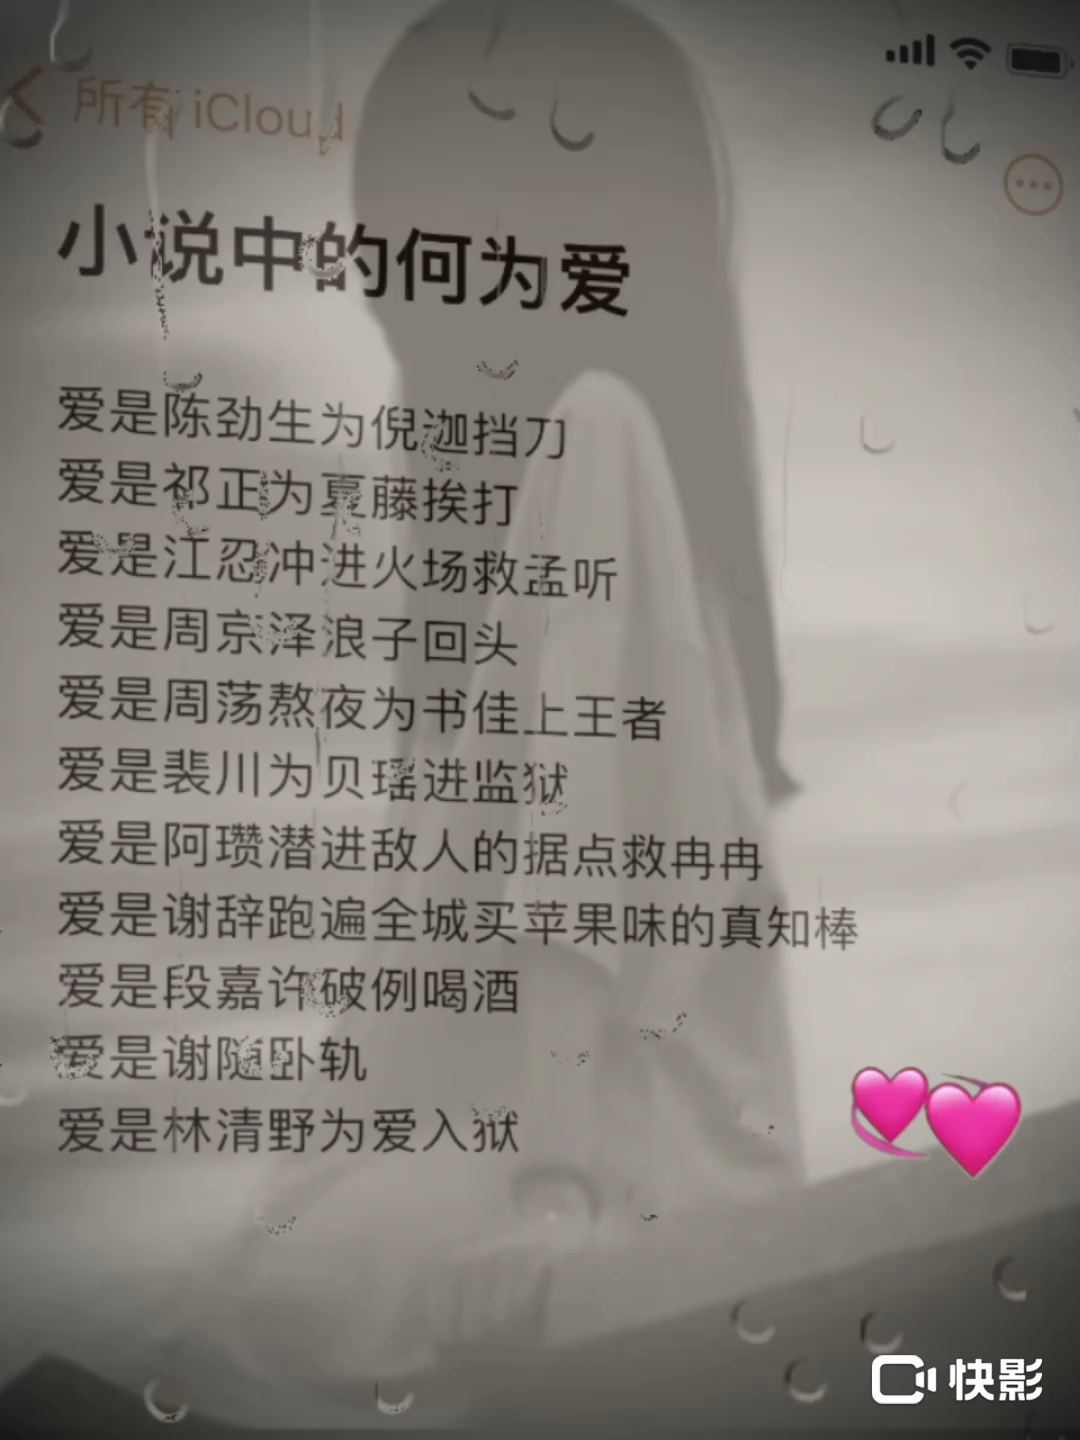 所有 iCloud
小说中的何为爱
爱是陈劲生为倪迦挡刀
爱是祁正为夏藤挨打
爱是江忍冲进火场救孟听
爱是周京泽浪子回头
爱是周荡熬夜为书佳上王者
爱是裴川为贝瑶进监狱
爱是阿瓒潜进敌人的据点救冉冉
爱是谢辞跑遍全城买苹果味的真知棒
爱是段嘉许破例喝酒
爱是谢随卧轨
爱是林清野为爱入狱
快影